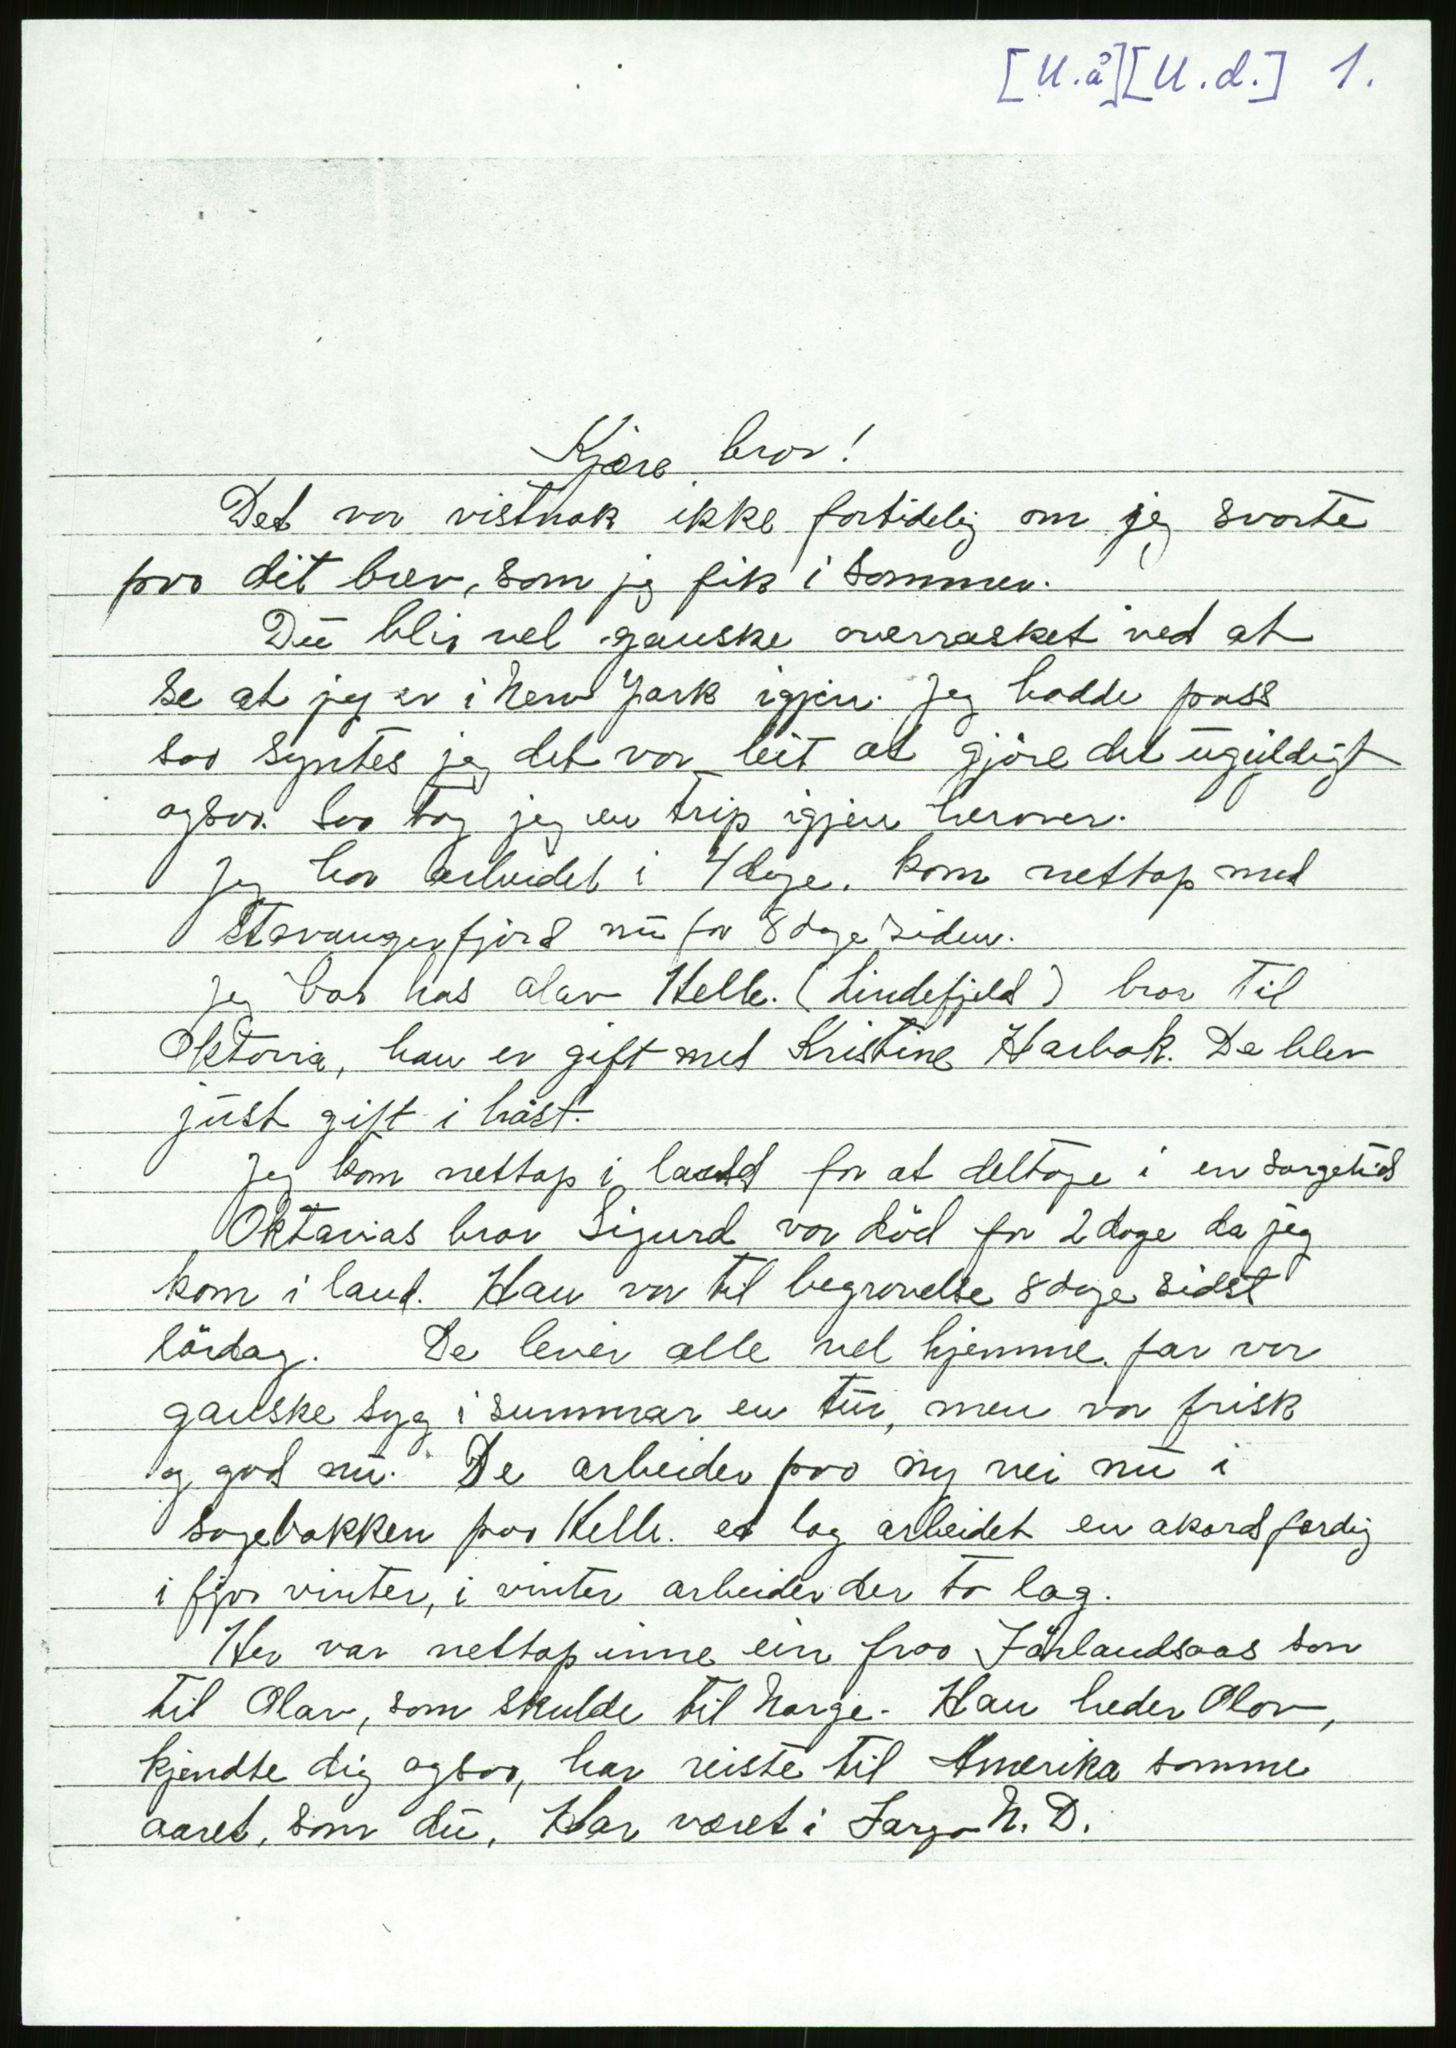 [U.å][U.d.] 1.
Kjære bror!
Det var vistnok ikke fortidelig om jeg svarte
paa dit brev, som jeg fik i sommer.
Du blir vel ganske overrasket ved at
se at jeg er i New York igjen. Jeg hadde pass
saa syntes jeg det var leit at gjøre det ugyldigt
ogsaa. Saa tog jeg en trip igjen herover.
Jeg har arbeidet i 4 dage. kom nettop med
Stavangerfjord nu for 8 dage siden.
Jeg bor hos Olav Helle. (Lindefjeld) bror til
Oktavia, han er gift med Kristine Harbak. De blev
just gift i høst.
Jeg kom nettop i land for at deltage i en sorgetid
Oktavias bror Sigurd var död for 2 dage da jeg
kom i land. Han var til begravelse 8 dage sidst
lördag. De lever alle vel hjemme. far var
ganske syg i summar en tur, men var frisk
og god nu. De arbeider paa ny vei nu i
sagebakken paa Helle. et lag arbeidet en akord færdig
i fjor vinter, i vinter arbeider der to lag.
Her var nettop inne ein fraa Järlandsaas son
til Olav, som skulde til Norge. Han heder Olav,
kjendte dig ogsaa, har reiste til Amerika samme
aaret, som du, Har været i Fargo N. D.